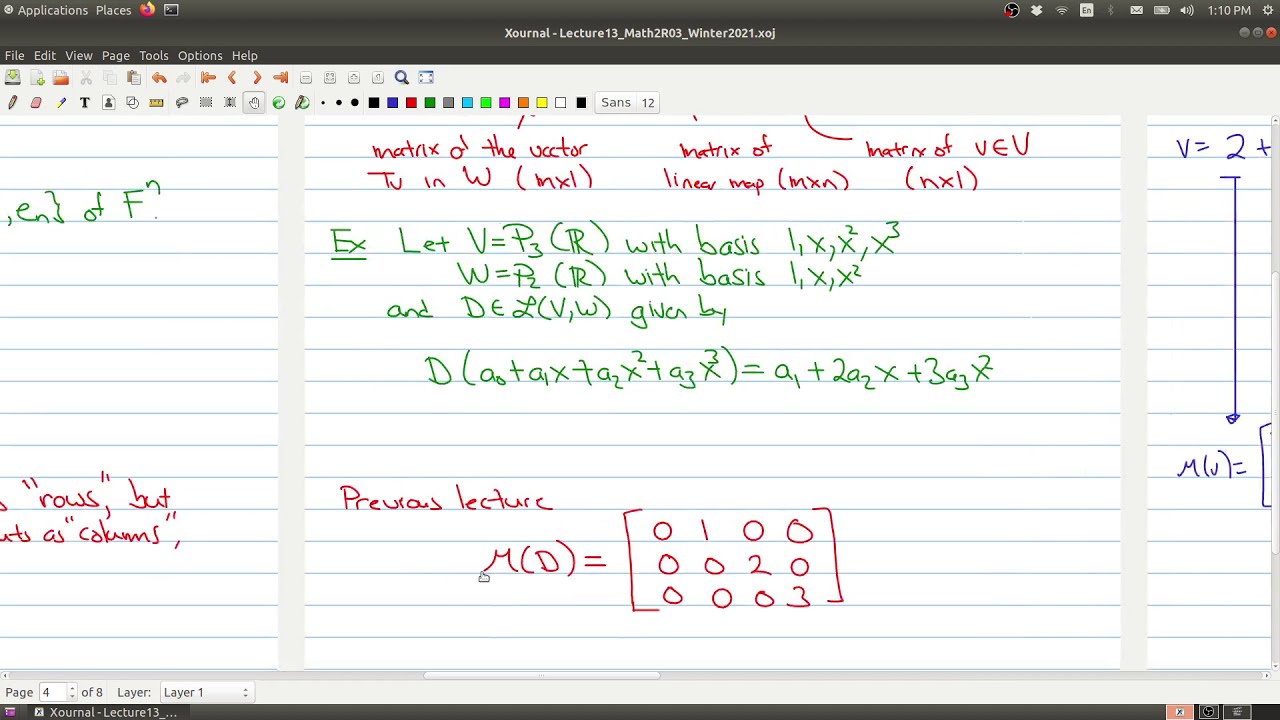 Applications Places
En
1:10 PM
Xournal - Lecture13_Math2R03_Winter2021.xoj
File Edit View Page Tools Options Help
Sans 12
,en} of Fⁿ
"rows", but
as "columns",
matrix of the vector
Tv in W (m×1)
matrix of
linear map (m×n)
matrix of v∈V
(n×1)
Ex Let V=P₃(ℝ) with basis 1,x,x²,x³
W=P₂(ℝ) with basis 1,x,x²
and D∈ℒ(V,W) given by
D(a₀+a₁x+a₂x²+a₃x³)=a₁+2a₂x+3a₃x²
Previous lecture
M(D)=
0 1 0 0
0 0 2 0
0 0 0 3
V= 2 +
M(v)=
Page 4 of 8 Layer: Layer 1
Xournal - Lecture13_...